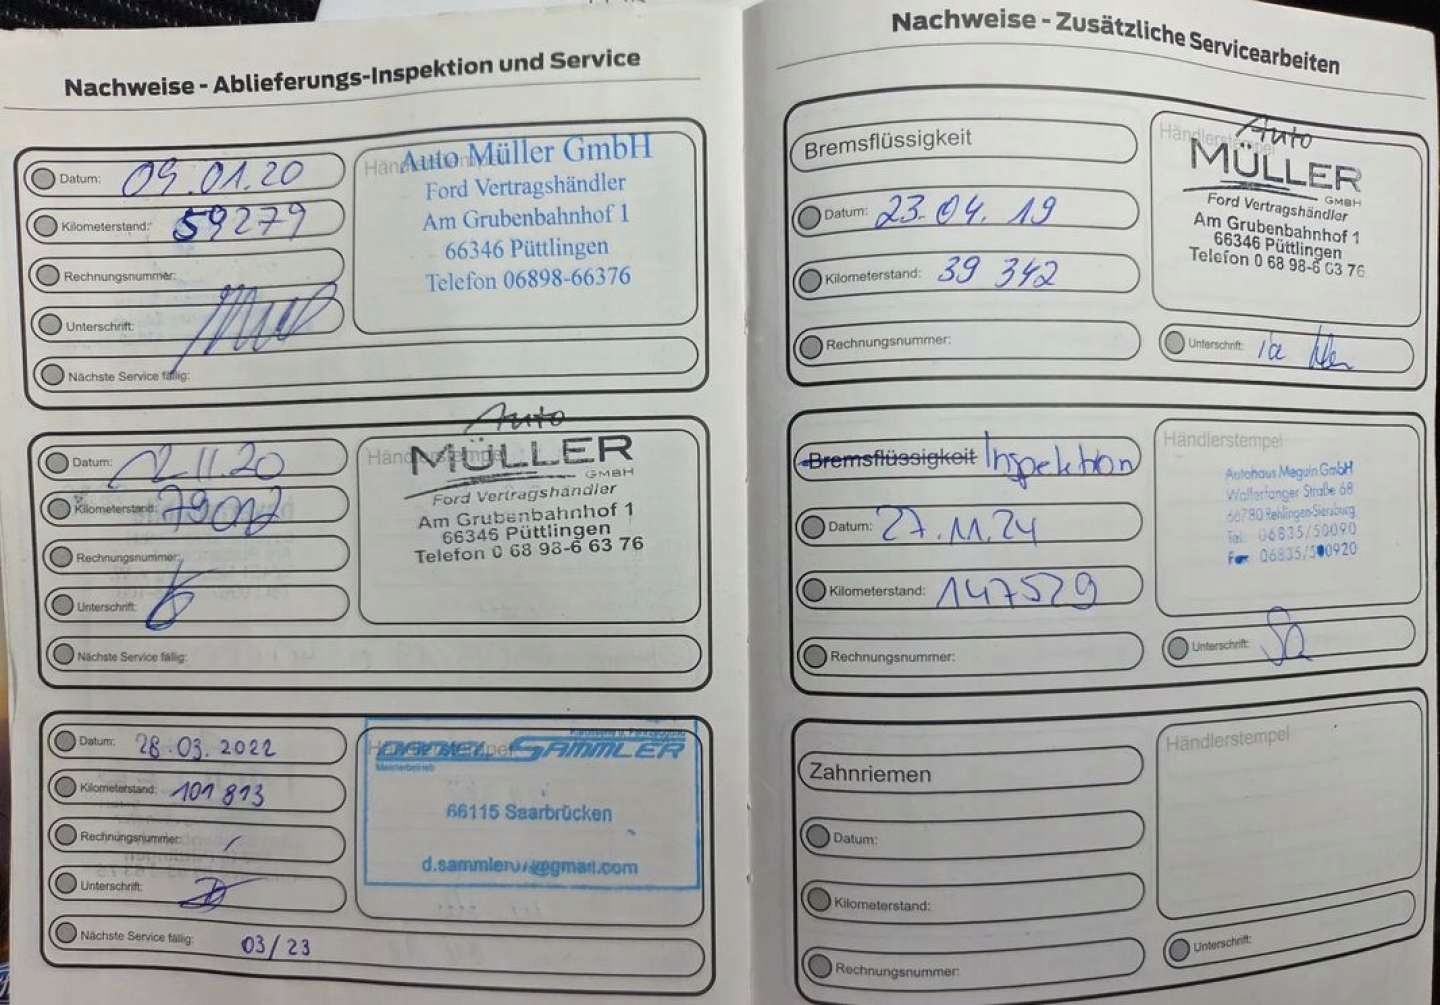 Nachweise - Ablieferungs-Inspektion und Service
Datum: 09.01.20
Kilometerstand: 59279
Rechnungsnummer:
Unterschrift:
Nächste Service fällig:
Auto Müller GmbH
Ford Vertragshändler
Am Grubenbahnhof 1
66346 Püttlingen
Telefon 06898-66376
Datum: 12.11.20
Kilometerstand: 79012
Rechnungsnummer:
Unterschrift:
Nächste Service fällig:
Händlerstempel
Auto
MÜLLER
GMBH
Ford Vertragshändler
Am Grubenbahnhof 1
66346 Püttlingen
Telefon 0 68 98-6 63 76
Datum: 28.03.2022
Kilometerstand: 101 813
Rechnungsnummer:
Unterschrift:
Nächste Service fällig: 03/23
SAMMLER
Meisterbetrieb
66115 Saarbrücken
Nachweise - Zusätzliche Servicearbeiten
Bremsflüssigkeit
Datum: 23.04.19
Kilometerstand: 39 342
Rechnungsnummer:
Händlerstempel
Auto
MÜLLER
GMBH
Ford Vertragshändler
Am Grubenbahnhof 1
66346 Püttlingen
Telefon 0 68 98-6 63 76
Unterschrift:
Bremsflüssigkeit Inspektion
Datum: 27.11.24
Kilometerstand: 147529
Rechnungsnummer:
Händlerstempel
Autohaus Meguin GmbH
Wallerfanger Straße 68
66780 Rehlingen-Siersburg
Tel. 06835/50090
Fax 06835/500920
Unterschrift:
Zahnriemen
Datum:
Kilometerstand:
Rechnungsnummer:
Händlerstempel
Unterschrift: